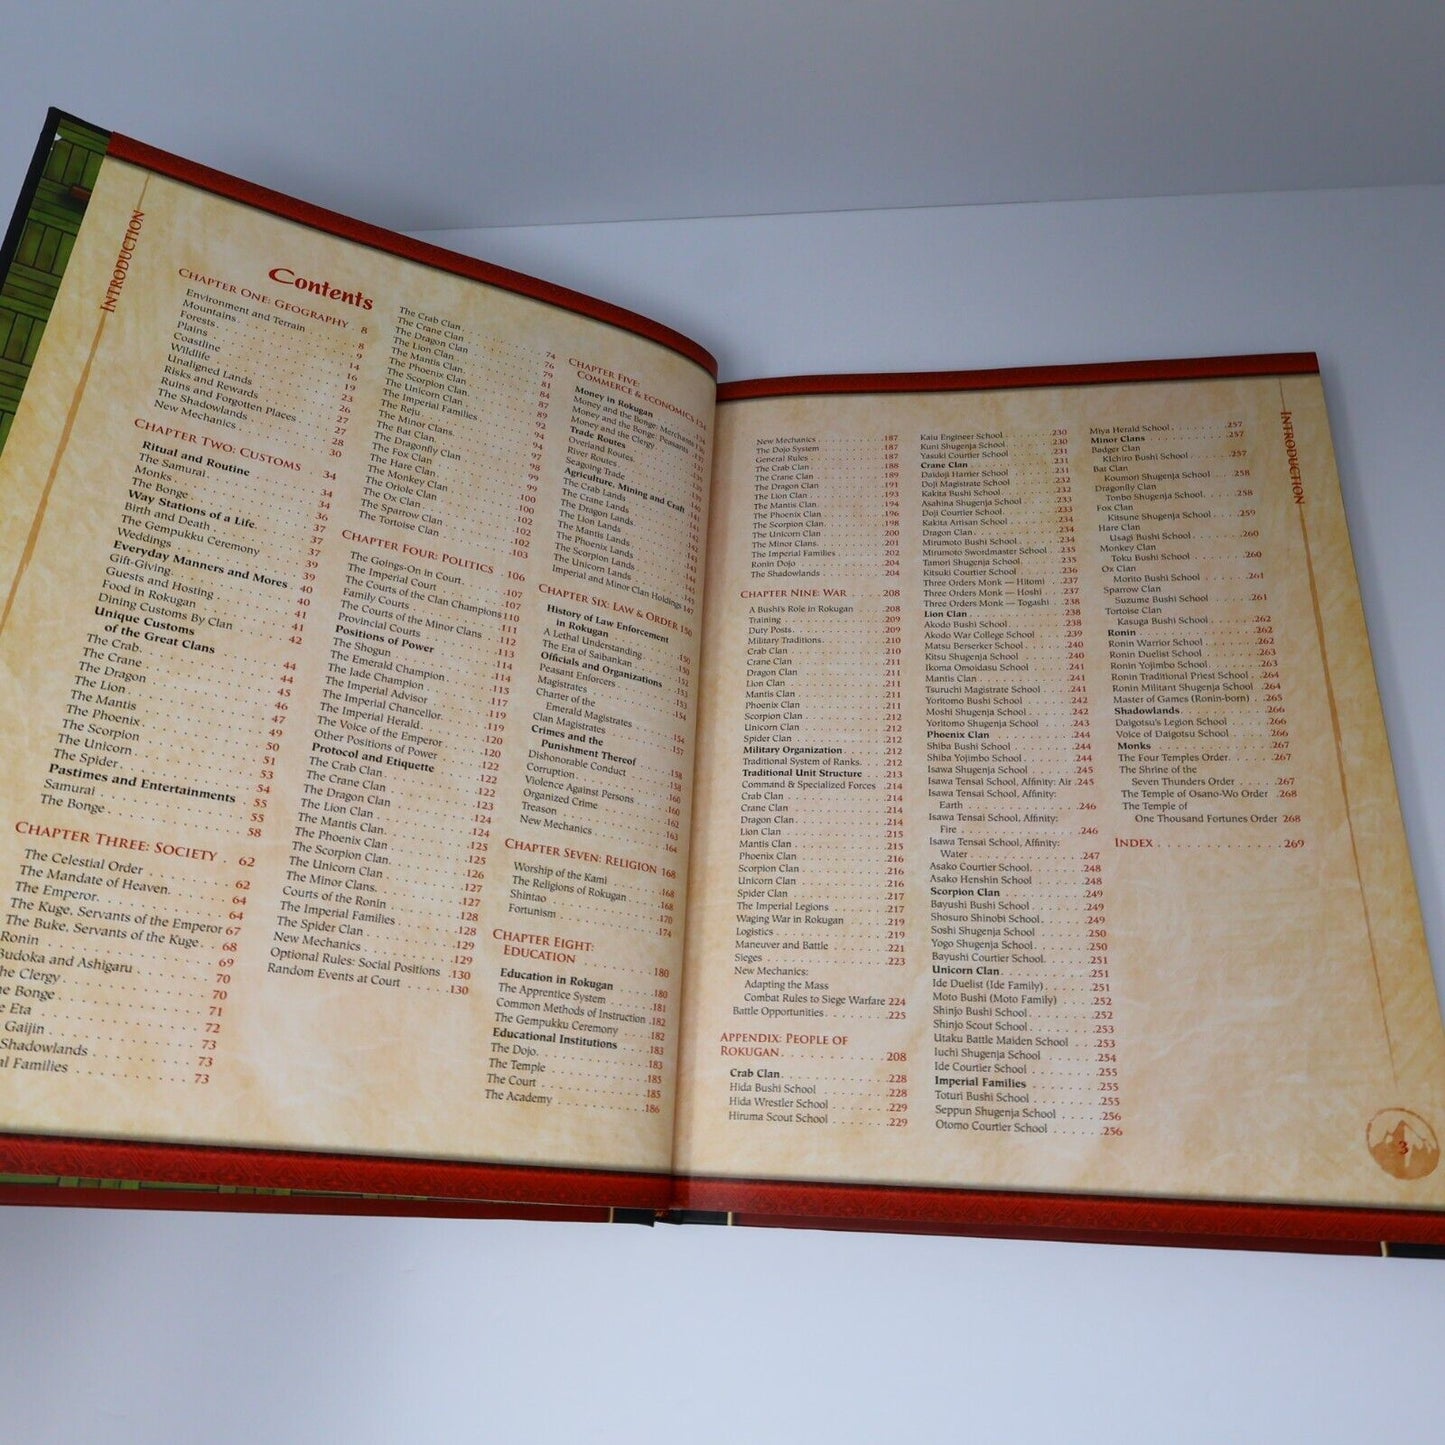 INTRODUCTION
Contents
CHAPTER ONE: GEOGRAPHY . 8
Environment and Terrain . . . . 8
Mountains
Forests
Plains
Coastline
Wildlife
Unaligned Lands
Risks and Rewards
Ruins and Forgotten Places
The Shadowlands
New Mechanics . . . . 30
CHAPTER TWO: CUSTOMS . . 34
Ritual and Routine
The Samurai
Monks
The Bonge
Way Stations of a Life
Birth and Death
The Gempukku Ceremony
Weddings
Everyday Manners and Mores
Gift-Giving
Guests and Hosting
Food in Rokugan
Dining Customs By Clan
Unique Customs
of the Great Clans
The Crab
The Crane
The Dragon
The Lion
The Mantis
The Phoenix
The Scorpion
The Unicorn
The Spider
Pastimes and Entertainments
Samurai
The Bonge . . . . 58
CHAPTER THREE: SOCIETY . 62
The Celestial Order . . . . 62
The Mandate of Heaven. . . . 64
The Emperor. . . . 64
The Kuge, Servants of the Emperor 67
The Buke, Servants of the Kuge. . 68
Ronin . . . . 69
Budoka and Ashigaru . . . . 70
The Clergy . . . . 70
The Bonge . . . . 71
Eta . . . . 72
Gaijin . . . . 73
Shadowlands . . . . 73
Families . . . . 73
The Crab Clan . . . . 74
The Crane Clan . . . . 76
The Dragon Clan . . . . 79
The Lion Clan . . . . 81
The Mantis Clan . . . . 84
The Phoenix Clan . . . . 87
The Scorpion Clan . . . . 89
The Unicorn Clan . . . . 92
The Imperial Families . . . . 94
The Reju
The Minor Clans
The Bat Clan
The Dragonfly Clan
The Fox Clan
The Hare Clan
The Monkey Clan
The Oriole Clan
The Ox Clan
The Sparrow Clan
The Tortoise Clan . . . . 103
CHAPTER FOUR: POLITICS . 106
The Goings-On in Court. . . . .107
The Imperial Court . . . . .107
The Courts of the Clan Champions 110
Family Courts . . . . .111
The Courts of the Minor Clans . .112
Provincial Courts . . . . .113
Positions of Power . . . . .114
The Shogun . . . . .114
The Emerald Champion . . . .115
The Jade Champion . . . . .117
The Imperial Advisor . . . . .119
The Imperial Chancellor. . . . .119
The Imperial Herald. . . . .120
The Voice of the Emperor . . . .120
Other Positions of Power . . . .122
Protocol and Etiquette . . . . .122
The Crab Clan . . . . .122
The Crane Clan . . . . .123
The Dragon Clan . . . . .124
The Lion Clan . . . . .124
The Mantis Clan. . . . .125
The Phoenix Clan . . . . .125
The Scorpion Clan. . . . .126
The Unicorn Clan . . . . .127
The Minor Clans. . . . .127
Courts of the Ronin . . . . .128
The Imperial Families . . . . .128
The Spider Clan . . . . .129
New Mechanics . . . . .129
Optional Rules: Social Positions .130
Random Events at Court . . . .130
CHAPTER FIVE:
COMMERCE & ECONOMICS 134
Money in Rokugan
Money and the Bonge: Merchants
Money and the Bonge: Peasants
Money and the Clergy
Trade Routes
Overland Routes
River Routes
Seagoing Trade
Agriculture, Mining and Craft
The Crab Lands
The Crane Lands
The Dragon Lands
The Lion Lands
The Mantis Lands
The Phoenix Lands
The Scorpion Lands
The Unicorn Lands
Imperial and Minor Clan Holdings 147
CHAPTER SIX: LAW & ORDER 150
History of Law Enforcement
in Rokugan . . . . .150
A Lethal Understanding . . . .150
The Era of Saibankan . . . . .152
Officials and Organizations
Peasant Enforcers
Magistrates
Charter of the
Emerald Magistrates
Clan Magistrates . . . . .157
Crimes and the
Punishment Thereof . . . . .158
Dishonorable Conduct . . . . .158
Corruption. . . . .158
Violence Against Persons . . . .160
Organized Crime . . . . .160
Treason . . . . .162
New Mechanics . . . . .163
.164
CHAPTER SEVEN: RELIGION 168
Worship of the Kami . . . . .168
The Religions of Rokugan . . . .168
Shintao . . . . .170
Fortunism . . . . .174
CHAPTER EIGHT:
EDUCATION . . . . 180
Education in Rokugan . . . . .180
The Apprentice System . . . . .181
Common Methods of Instruction .182
The Gempukku Ceremony . . . .182
Educational Institutions . . . .183
The Dojo. . . . .183
The Temple . . . . .185
The Court . . . . .185
The Academy . . . . .186
New Mechanics . . . . .187
The Dojo System . . . . .187
General Rules . . . . .187
The Crab Clan . . . . .188
The Crane Clan . . . . .189
The Dragon Clan . . . . .191
The Lion Clan . . . . .193
The Mantis Clan. . . . .194
The Phoenix Clan . . . . .196
The Scorpion Clan. . . . .198
The Unicorn Clan . . . . .200
The Minor Clans. . . . .201
The Imperial Families . . . . .202
Ronin Dojo . . . . .204
The Shadowlands . . . . .204
CHAPTER NINE: WAR . . . . 208
A Bushi's Role in Rokugan . . . .208
Training . . . . .209
Duty Posts. . . . .209
Military Traditions. . . . .210
Crab Clan . . . . .210
Crane Clan . . . . .211
Dragon Clan . . . . .211
Lion Clan . . . . .211
Mantis Clan . . . . .211
Phoenix Clan . . . . .211
Scorpion Clan . . . . .212
Unicorn Clan . . . . .212
Spider Clan . . . . .212
Military Organization. . . . .212
Traditional System of Ranks. . . .212
Traditional Unit Structure . . . .213
Command & Specialized Forces .214
Crab Clan . . . . .214
Crane Clan . . . . .214
Dragon Clan . . . . .214
Lion Clan . . . . .215
Mantis Clan . . . . .215
Phoenix Clan . . . . .216
Scorpion Clan . . . . .216
Unicorn Clan . . . . .216
Spider Clan . . . . .217
The Imperial Legions . . . . .217
Waging War in Rokugan . . . .219
Logistics . . . . .219
Maneuver and Battle . . . . .221
Sieges . . . . .223
New Mechanics:
Adapting the Mass
Combat Rules to Siege Warfare 224
Battle Opportunities. . . . .225
APPENDIX: PEOPLE OF
ROKUGAN. . . . . 208
Crab Clan. . . . .228
Hida Bushi School . . . . .228
Hida Wrestler School . . . . .229
Hiruma Scout School . . . . .229
Kaiu Engineer School . . . . .230
Kuni Shugenja School . . . . .230
Yasuki Courtier School . . . . .231
Crane Clan . . . . .231
Daidoji Harrier School . . . . .231
Doji Magistrate School . . . . .232
Kakita Bushi School . . . . .232
Asahina Shugenja School . . . .233
Doji Courtier School . . . . .233
Kakita Artisan School . . . . .234
Dragon Clan . . . . .234
Mirumoto Bushi School . . . . .234
Mirumoto Swordmaster School . .235
Tamori Shugenja School . . . .235
Kitsuki Courtier School . . . . .236
Three Orders Monk — Hitomi . .237
Three Orders Monk — Hoshi . . .237
Three Orders Monk — Togashi . .238
Lion Clan . . . . .238
Akodo Bushi School . . . . .238
Akodo War College School . . . .239
Matsu Berserker School . . . . .240
Kitsu Shugenja School . . . . .240
Ikoma Omoidasu School . . . . .241
Mantis Clan . . . . .241
Tsuruchi Magistrate School . . . .241
Yoritomo Bushi School . . . . .242
Moshi Shugenja School . . . . .242
Yoritomo Shugenja School . . . .243
Phoenix Clan . . . . .244
Shiba Bushi School . . . . .244
Shiba Yojimbo School . . . . .244
Isawa Shugenja School . . . . .245
Isawa Tensai School, Affinity: Air .245
Isawa Tensai School, Affinity:
Earth . . . . .246
Isawa Tensai School, Affinity:
Fire . . . . .246
Isawa Tensai School, Affinity:
Water . . . . .247
Asako Courtier School. . . . .248
Asako Henshin School . . . . .248
Scorpion Clan . . . . .249
Bayushi Bushi School . . . . .249
Shosuro Shinobi School . . . . .249
Soshi Shugenja School . . . . .250
Yogo Shugenja School . . . . .250
Bayushi Courtier School. . . . .251
Unicorn Clan. . . . .251
Ide Duelist (Ide Family) . . . . .251
Moto Bushi (Moto Family) . . . .252
Shinjo Bushi School . . . . .252
Shinjo Scout School . . . . .253
Utaku Battle Maiden School . . .253
Iuchi Shugenja School . . . . .254
Ide Courtier School . . . . .255
Imperial Families . . . . .255
Toturi Bushi School . . . . .255
Seppun Shugenja School . . . .256
Otomo Courtier School . . . . .256
Miya Herald School . . . . .257
Minor Clans. . . . .257
Badger Clan
KIchiro Bushi School . . . . .257
Bat Clan
Koumori Shugenja School . . . .258
Dragonfly Clan
Tonbo Shugenja School. . . . .258
Fox Clan
Kitsune Shugenja School . . . .259
Hare Clan
Usagi Bushi School . . . . .260
Monkey Clan
Toku Bushi School . . . . .260
Ox Clan
Morito Bushi School . . . . .261
Sparrow Clan
Suzume Bushi School . . . . .261
Tortoise Clan
Kasuga Bushi School . . . . .262
Ronin . . . . .262
Ronin Warrior School . . . . .262
Ronin Duelist School . . . . .263
Ronin Yojimbo School . . . . .263
Ronin Traditional Priest School . .264
Ronin Militant Shugenja School .264
Master of Games (Ronin-born) . .265
Shadowlands. . . . .266
Daigotsu's Legion School . . . .266
Voice of Daigotsu School . . . .266
Monks . . . . .267
The Four Temples Order. . . . .267
The Shrine of the
Seven Thunders Order . . . . .267
The Temple of Osano-Wo Order .268
The Temple of
One Thousand Fortunes Order 268
INDEX . . . . .269
INTRODUCTION
3